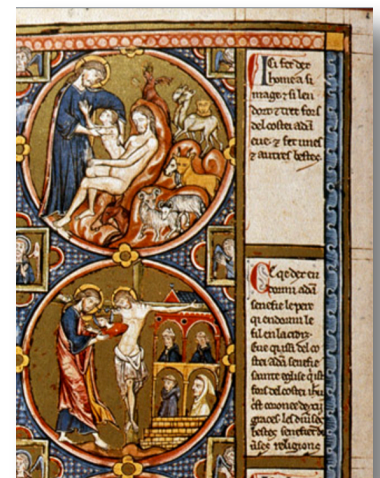 Ici fet dex
lhome a si
mage ⁊ si len
dort ⁊ tret fors
del costei adā
eue ⁊ fet unes
⁊ autres bestes
Ce qe dex en
dormi adā
senefie le pere
qi endormi le
fil en la croiz
Eue qissi del co
stei adā senefie
sainte eglise qist
fors del costei ihu
graces les diuses
bestes senefient di
uses religions